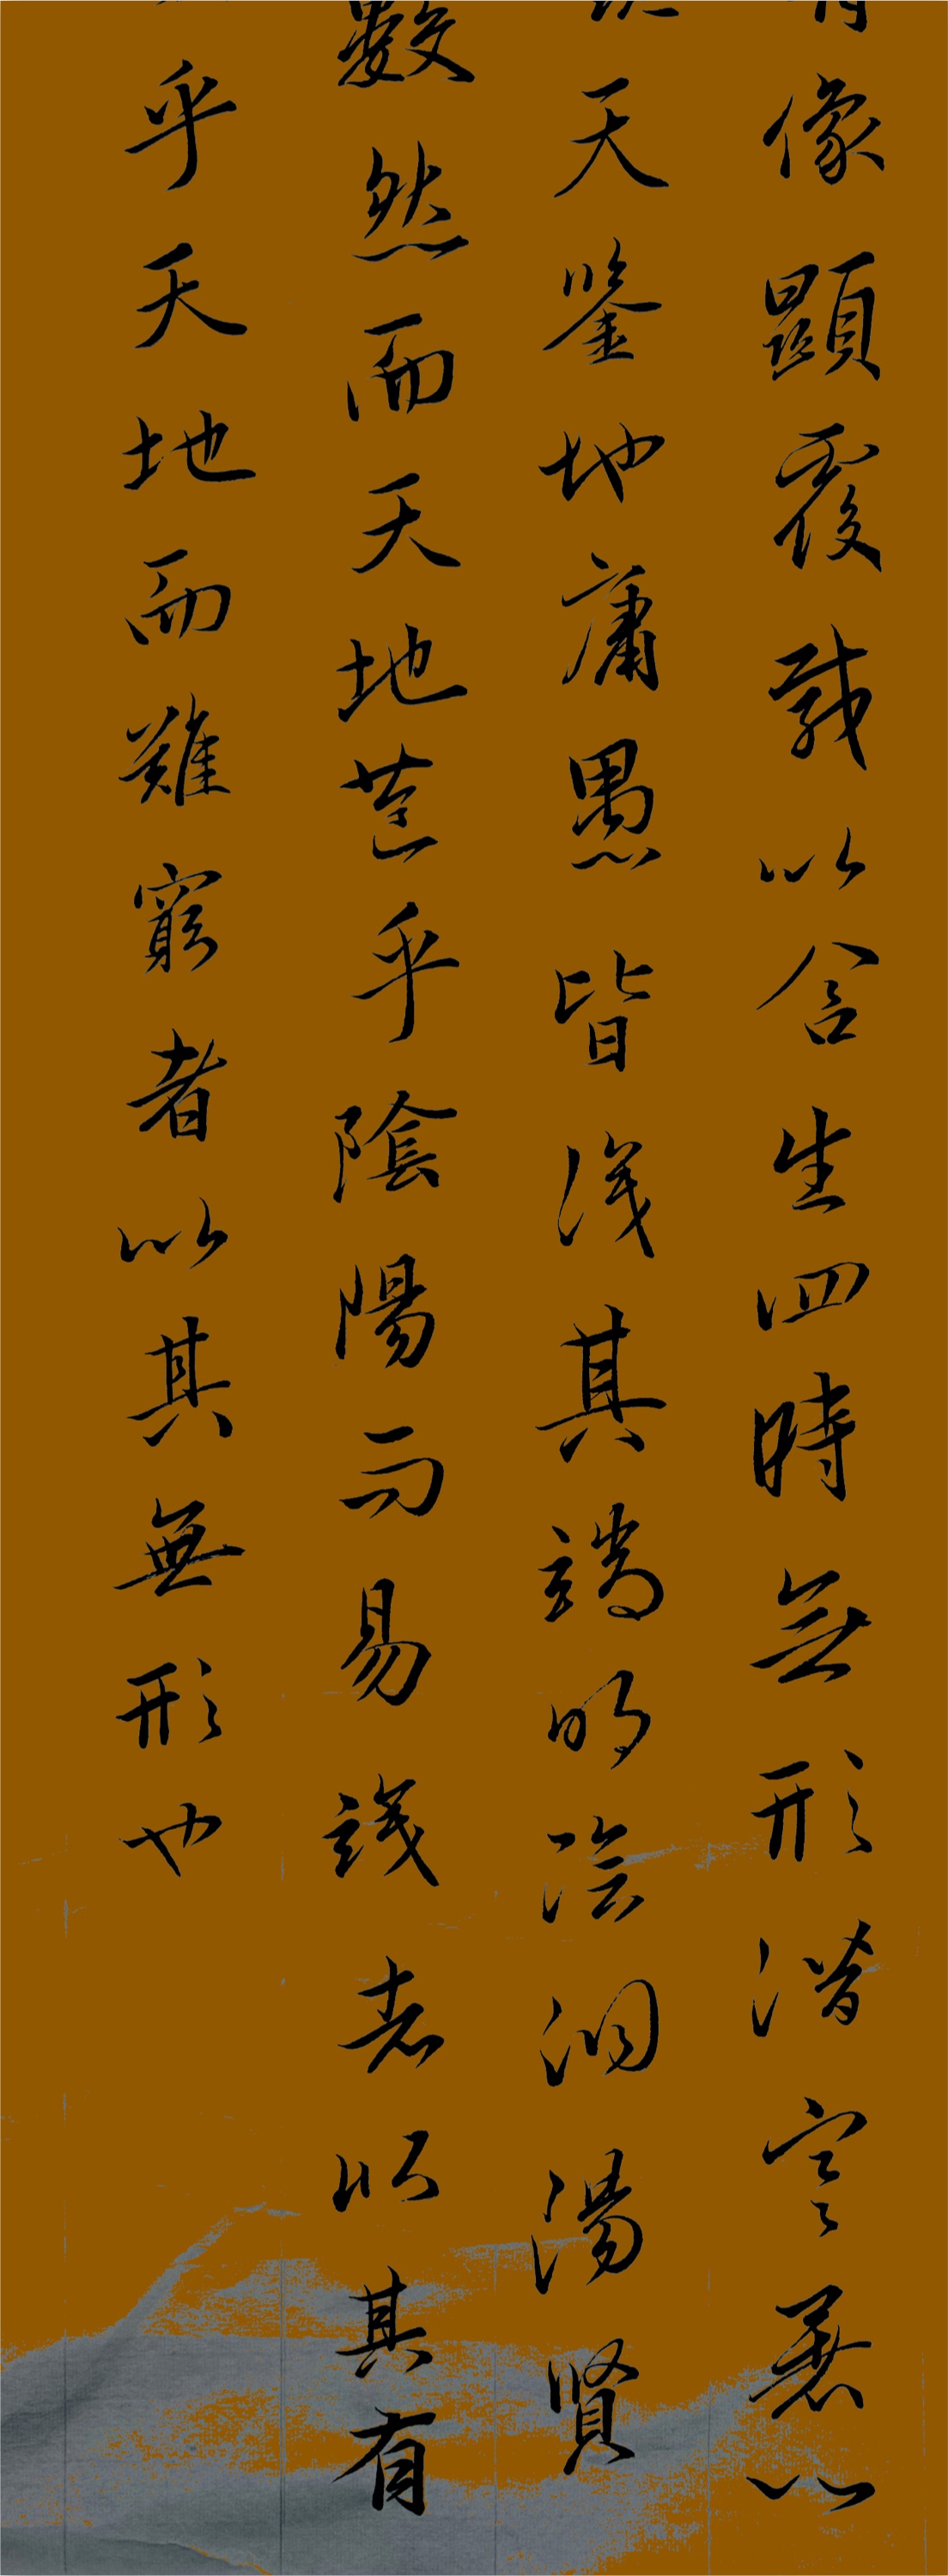 有像顯覆載以含生四時無形潛寒暑以
天鑒地庸愚皆識其端明陰洞陽賢
數然而天天地苞乎陰陽而易識者以其有
乎天地而難窮者以其無形也